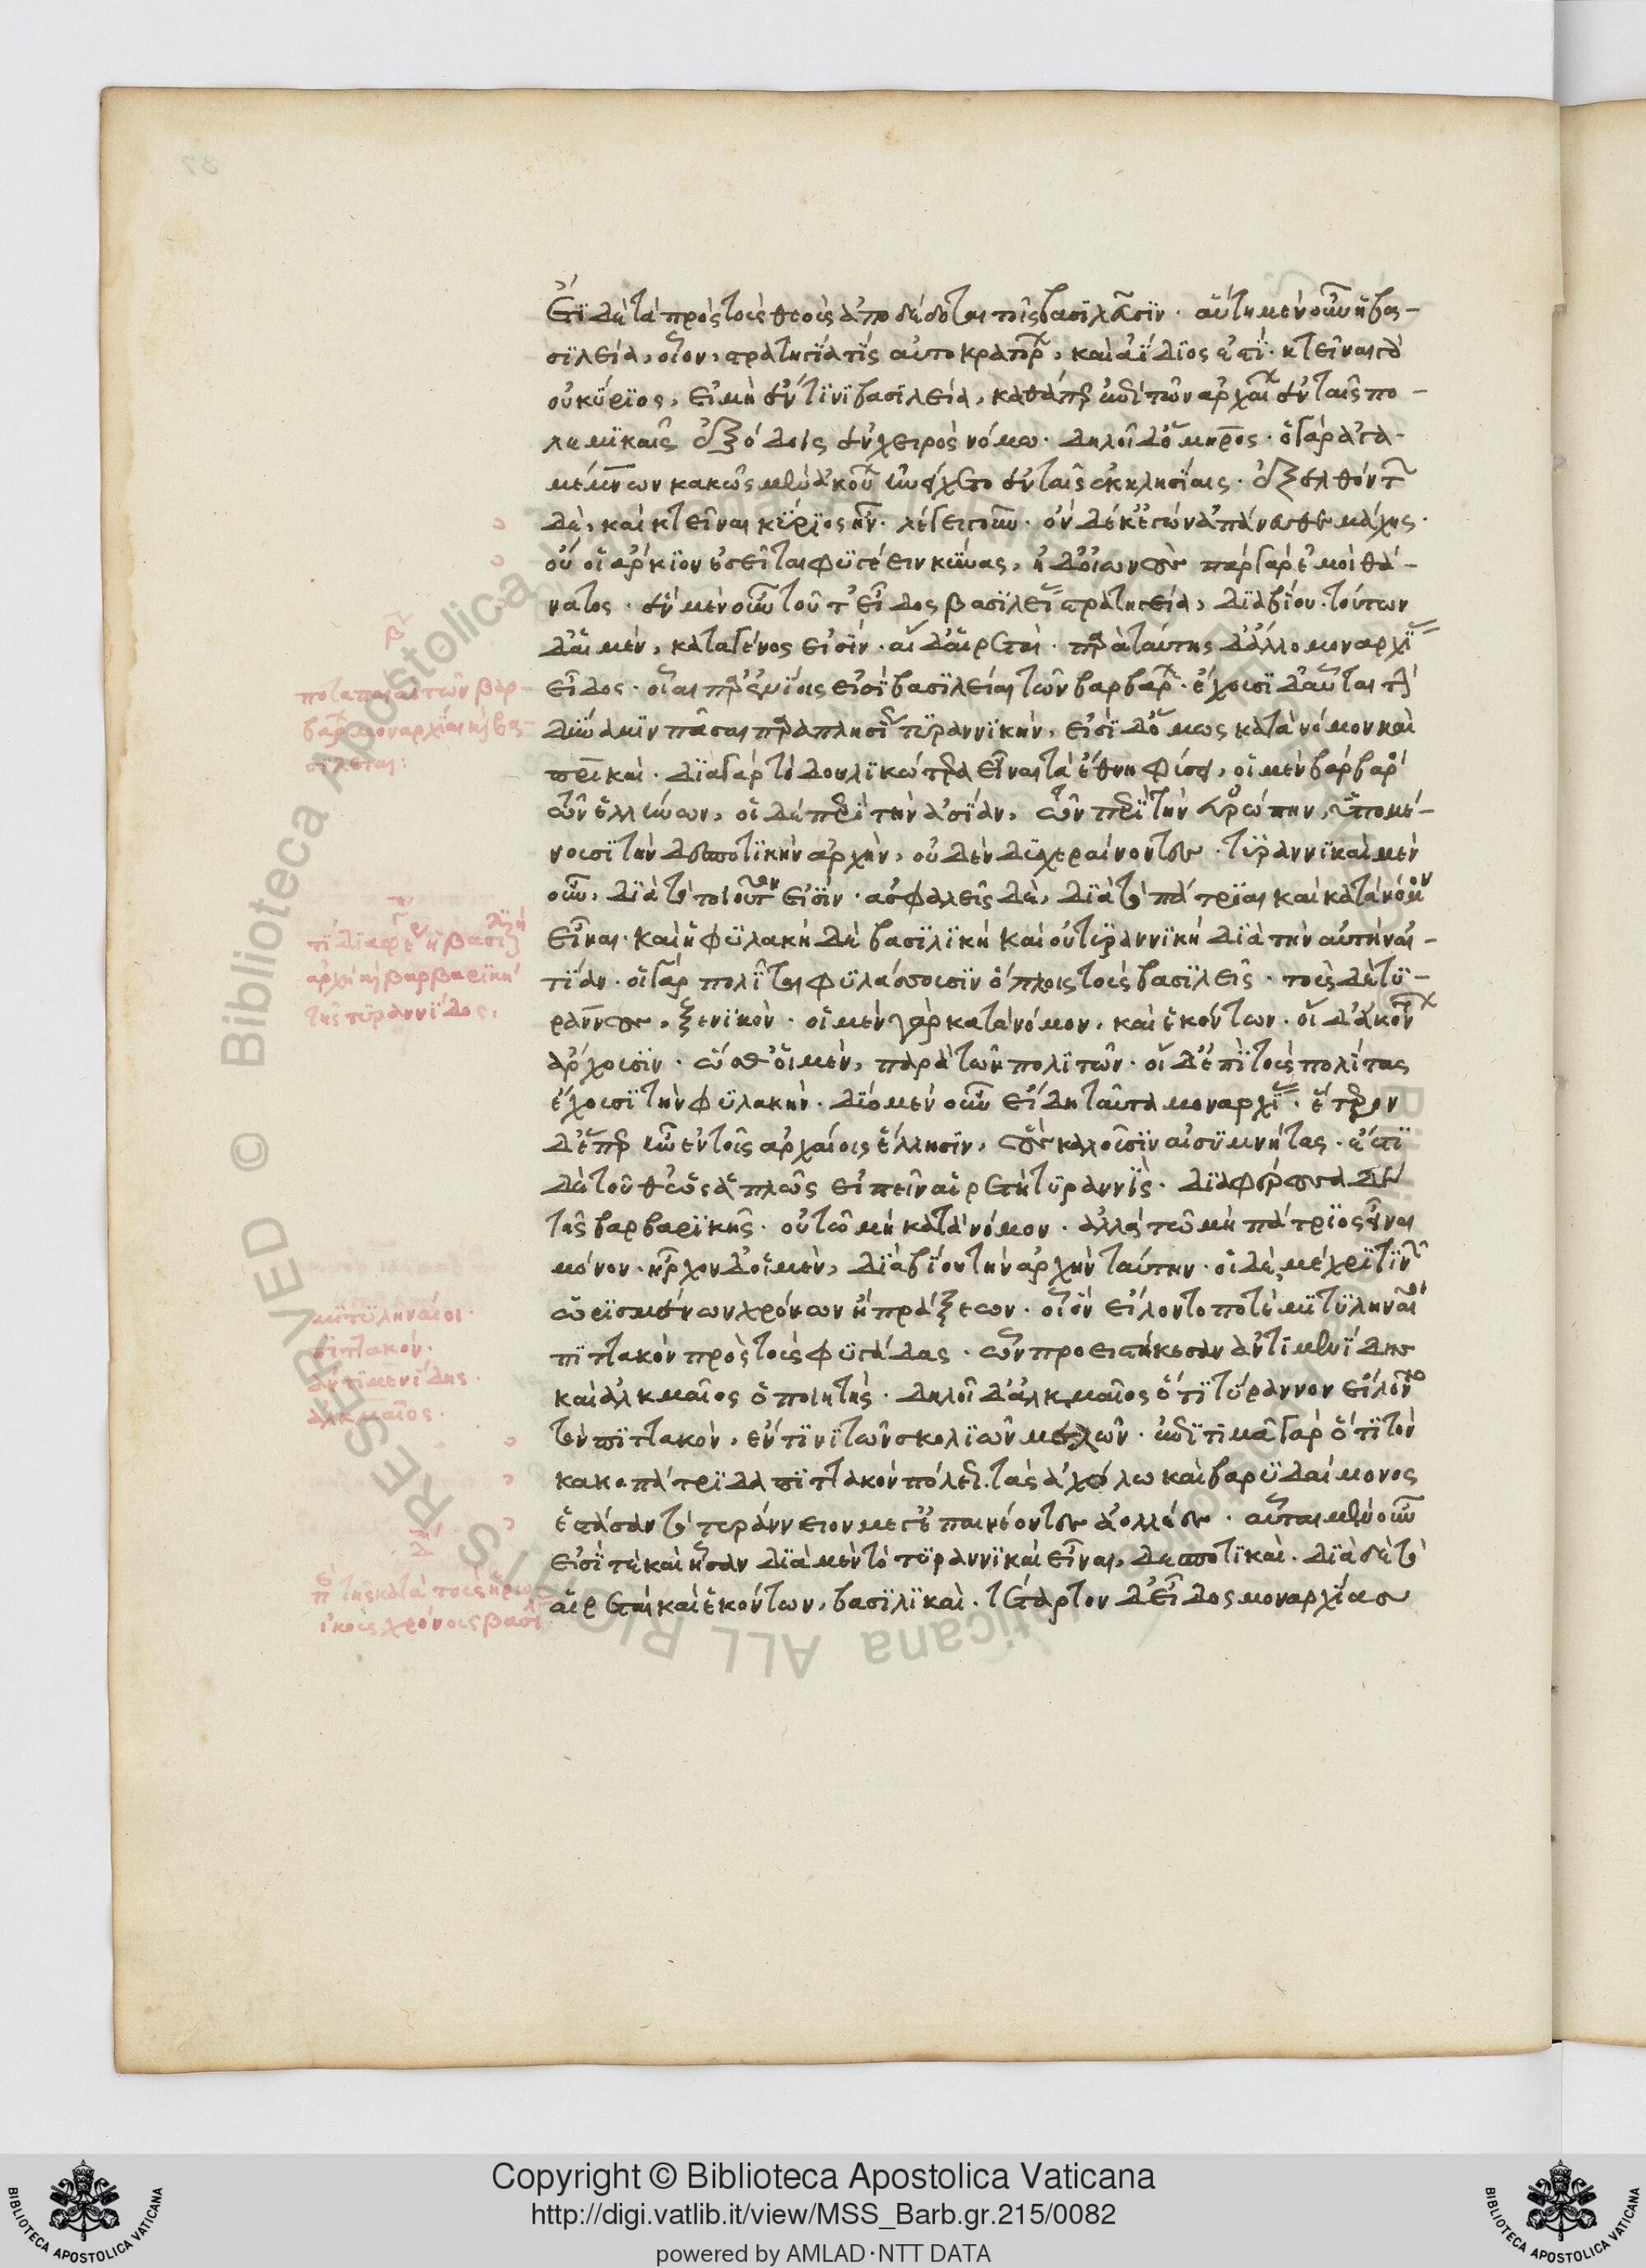 ἔτι δὲ τὰ πρὸς τοὺς θεοὺς ἀποδέδοται τοῖς βασιλεῦσιν. αὕτη μὲν οὖν ἡ βα-
σιλεία, οἷον, στρατηγία τίς αὐτοκρατόρων, καὶ ἀΐδιός ἐστι. κτεῖναι γὰρ
οὐ κύριος, εἰ μὴ ἔν τινι βασιλεία, καθάπερ ἐπὶ τῶν ἀρχαίων ἐν ταῖς πο-
λεμικαῖς ἐξόδοις ἐν χειρὸς νόμω. δηλοῖ δ' ὅμηρος. ὁ γὰρ ἀγα-
μέμνων κακῶς μὲν ἀκούων ἠνείχετο ἐν ταῖς ἐκκλησίαις. ἐξελθόντων
δὲ, καὶ κτεῖναι κύριος ἦν. λέγει γοῦν. ὃν δέ κ' ἐγὼν ἀπάνευθε μάχης.
οὔ οἱ ἄρκιον ἐσσεῖται φυγέειν κύνας, ἠδ' οἰωνούς παρ γὰρ ἐμοὶ θά-
νατος. ἓν μὲν οὖν τοῦτ' εἶδος βασιλείας στρατηγία, διὰ βίου. τούτων
δ' αἱ μὲν, κατὰ γένος εἰσίν. αἱ δ' αἱρεταὶ. παρὰ ταύτης δ' ἄλλο μοναρχίας
εἶδος. οἷαι παρ' ἐνίοις εἰσὶ βασιλείαι τῶν βαρβάρων. ἔχουσι δ' αὗται τὴν
δύναμιν πᾶσαι παραπλησίαν τυραννικὴν, εἰσὶ δ' ὅμως κατὰ νόμον καὶ
πατρικαὶ. διὰ γὰρ τὸ δουλικώτερα εἶναι τὰ ἔθνη φύσει, οἱ μὲν βάρβαροι
τῶν ἑλλήνων, οἱ δὲ περὶ τὴν ἀσίαν, τῶν περὶ τὴν εὐρώπην, ὑπομέ-
νουσι τὴν δεσποτικὴν ἀρχὴν, οὐδὲν δυσχεραίνοντες. τυραννικαὶ μὲν
οὖν, διὰ τὸ τοιοῦτον εἰσίν. ἀσφαλεῖς δὲ, διὰ τὸ πάτριαι καὶ κατὰ νόμον
εἶναι. καὶ ἡ φυλακὴ δὲ βασιλικὴ καὶ οὐ τυραννικὴ διὰ τὴν αὐτὴν αἰ-
τίαν. οἱ γὰρ πολῖται φυλάσσουσιν ὅπλοις τοὺς βασιλεῖς. τοὺς δὲ τυ-
ράννους, ξενικὸν. οἱ μὲν γὰρ κατὰ νόμον, καὶ ἑκόντων. οἱ δ' ἀκόντων
ἄρχουσιν. ὥσθ' οἱ μὲν, παρὰ τῶν πολιτῶν. οἱ δ' ἐπὶ τοὺς πολίτας
ἔχουσι τὴν φυλακὴν. δύο μὲν οὖν εἴδη ταῦτα μοναρχίας. ἕτερον
δ' ὅπερ ἦν ἐν τοῖς ἀρχαίοις ἕλλησιν, οὓς καλοῦσιν αἰσυμνήτας. ἔστι
δὲ τοῦθ' ὡς ἁπλῶς εἰπεῖν αἱρετὴ τυραννὶς. διαφέρουσα δὲ
τῆς βαρβαρικῆς. οὐ τῶ μὴ κατὰ νόμον. ἀλλὰ τῶ μὴ πάτριος εἶναι
μόνον. ἦρχον δ' οἱ μὲν, διὰ βίου τὴν ἀρχὴν ταύτην. οἱ δὲ, μέχρι τινῶν
ὡρισμένων χρόνων ἢ πράξεων. οἷον εἵλοντο ποτὲ μιτυληναῖοι
πιττακὸν πρὸς τοὺς φυγάδας. ὧν προειστήκεσαν ἀντιμενίδης
καὶ ἀλκμαῖος ὁ ποιητὴς. δηλοῖ δ' ἀλκμαῖος ὅτι τύραννον εἵλοντο
τὸν πιττακὸν, ἔν τινι τῶν σκολιῶν μελῶν. ἐπιτιμᾶ γὰρ ὅτι τὸν
κακοπάτριδα πιττακὸν πόλεως τᾶς ἀχόλω καὶ βαρυδαίμονος
ἐστάσαντο τύραννειον μεγ' ἐπαινέοντες ἀολλέες. αὗται μὲν οὖν
εἰσί τε καὶ ἦσαν διὰ μὲν τὸ τυραννικαὶ εἶναι, δεσποτικαὶ. διὰ δὲ τὸ
αἱρεταὶ καὶ ἑκόντων, βασιλικαὶ. τέταρτον δ' εἶδος μοναρχίας
β
ποταπαὶ αἱ τῶν βαρ-
βάρων μοναρχίαι καὶ βα-
σιλεῖαι:
γ
τί διαφέρει ἡ βασιλικὴ
ἀρχὴ καὶ βαρβαρικὴ
τῆς τυραννίδος.
μιτυληναίοι.
πιττακόν.
ἀντιμενίδης.
ἀλκμαῖος.
δ
περὶ τῆς κατὰ τοὺς ἡρω
ικοὺς χρόνους βασιλείας
© Biblioteca Apostolica Vaticana ALL RIGHTS RESERVED
Copyright © Biblioteca Apostolica Vaticana
http://digi.vatlib.it/view/MSS_Barb.gr.215/0082
powered by AMLAD·NTT DATA
BIBLIOTECA APOSTOLICA VATICANA
BIBLIOTECA APOSTOLICA VATICANA